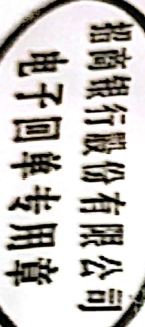 招商银行股份有限公司
电子回单专用章